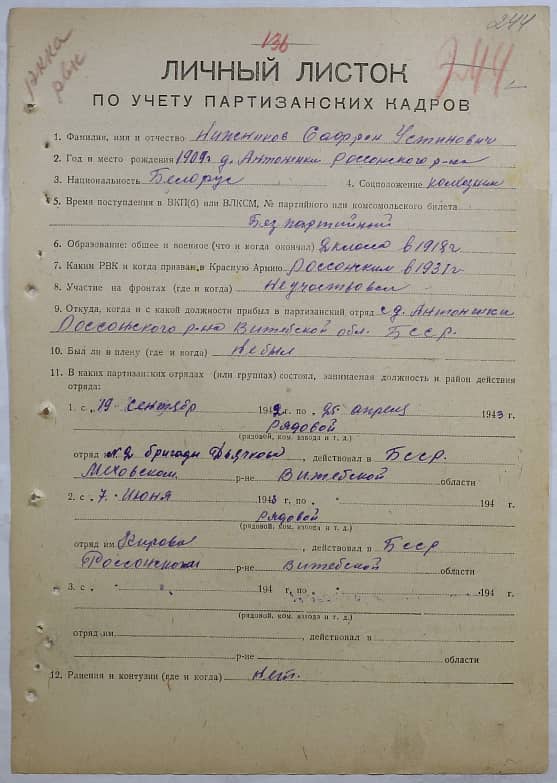 244
136
РККА
РВК
244
ЛИЧНЫЙ ЛИСТОК
ПО УЧЕТУ ПАРТИЗАНСКИХ КАДРОВ
1. Фамилия, имя и отчество Нижников Сафрон Устинович
2. Год и место рождения 1909г д. Антонинки Россонского р-на
3. Национальность Белорус 4. Соцположение колхозник
5. Время поступления в ВКП(б) или ВЛКСМ, № партийного или комсомольского билета
Без партийный
6. Образование: общее и военное (что и когда окончил) 2 класса в 1918г
7. Каким РВК и когда призван в Красную Армию Россонским в 1931г
8. Участие на фронтах (где и когда) Не участвовал
9. Откуда, когда и с какой должности прибыл в партизанский отряд с д. Антонинки
Россонского р-на Витебской обл. БССР.
10. Был ли в плену (где и когда) Не был
11. В каких партизанских отрядах (или группах) состоял, занимаемая должность и район действия
отряда:
1. с „19 сентября 1942 г. по „25 апреля 1943 г.
Рядовой
(рядовой, ком. взвода и т. д.)
отряд №2 бригады Дьячкова, действовал в БССР.
Меховском р-не Витебской области
2. с „7. Июня 1943 г. по „ " 194 г.
Рядовой
(рядовой, ком. взвода и т. д.)
отряд им Кирова, действовал в БССР
Россонском р-не Витебской области
3. с „ " 194 г. по „ " 194 г.
(рядовой, ком. взвода и т. д.)
отряд им. , действовал в
р-не области
12. Ранения и контузии (где и когда) Нет.